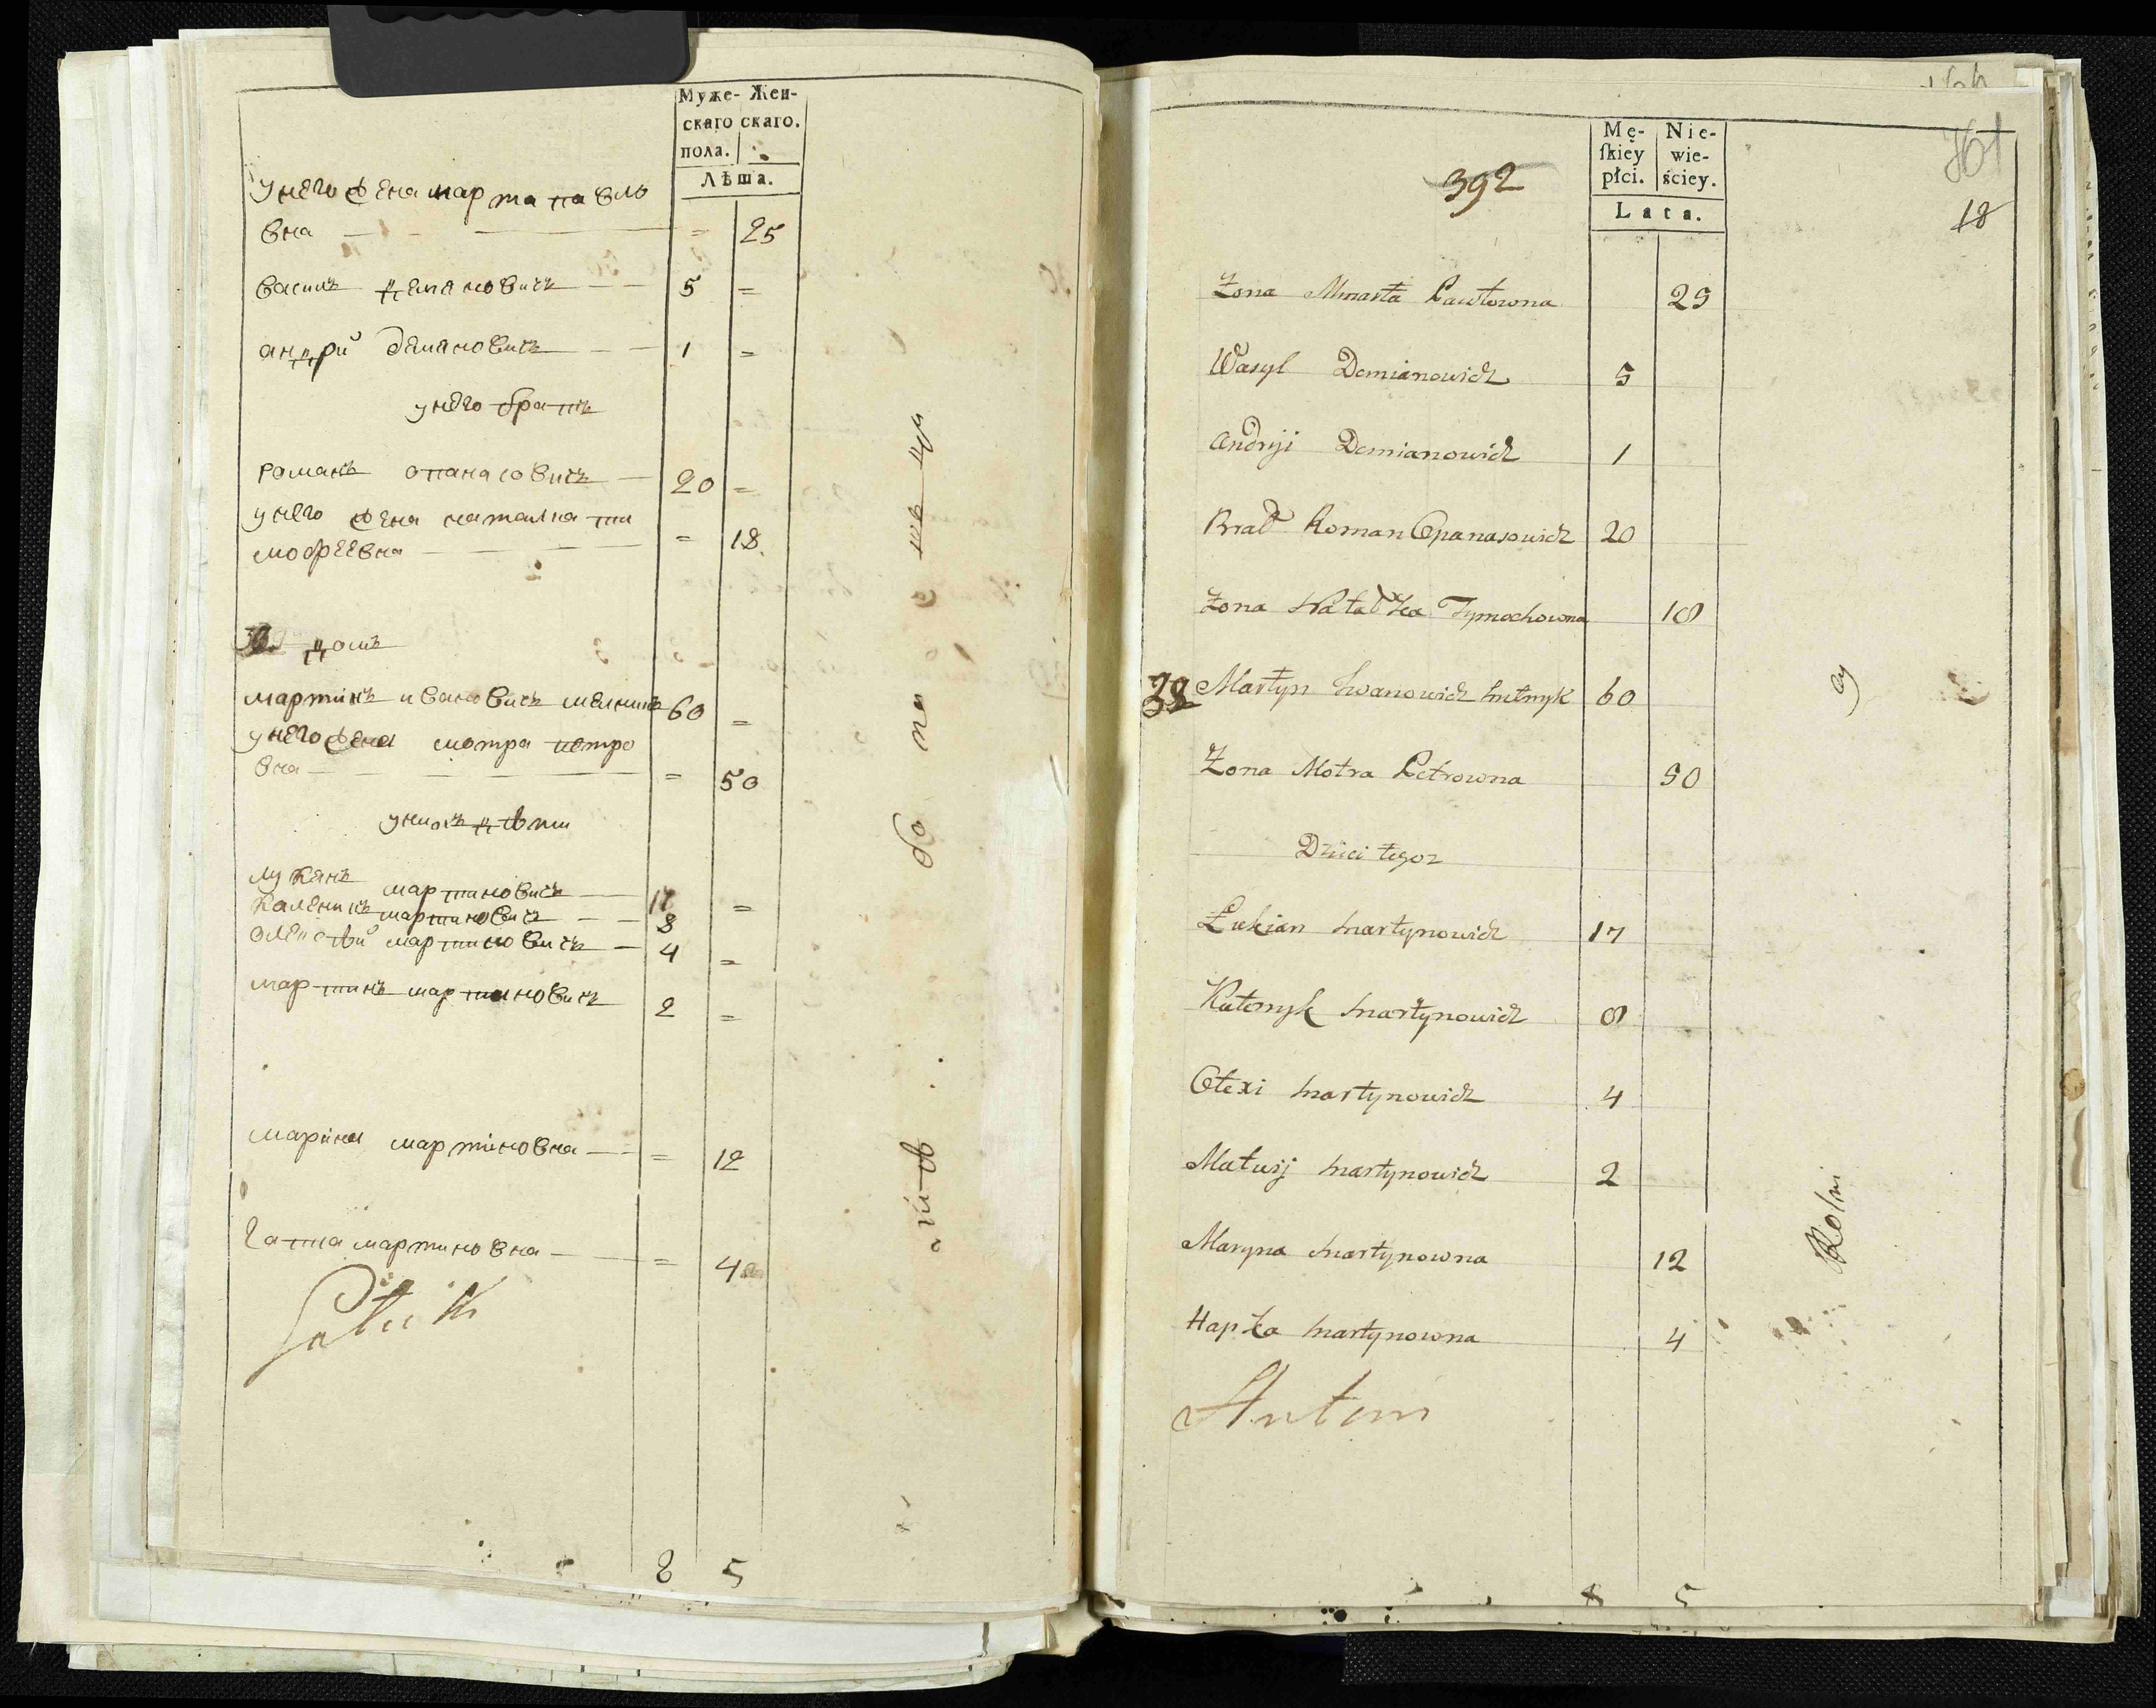 Муже- Жен-
скаго скаго.
пола.
Лѣта.
унего жена марта павло
вна 25
василь демяновичъ 5
андрій демяновичъ 1
унего братъ
романъ опанасовичъ 20
унего жена наталка ти
мофѣевна 18
домъ
мартинъ ивановичъ мелникъ 60
унего жена мотра петро
вна 50
унихъ дѣти
лукянъ мартиновичъ 17
каленикъ мартиновичъ 8
олексѣй мартиновичъ 4
мартинъ мартиновичъ 2
марина мартиновна 12
гапка мартиновна 4
8 5
392
Mę- Nie-
ſkiey wie-
płci. ściey.
Lata.
361
18
Żona Marta Pawłowna 25
Wasyl Demianowicz 5
Andryi Demianowicz 1
Brat Roman Opanasowicz 20
Żona Natałka Tymochowna 18
39 Martyn Iwanowicz Melnyk 60
Żona Motra Petrowna 50
Dzieci tegoz
Łukian Martynowicz 17
Kałenyk Martynowicz 8
Ołexi Martynowicz 4
Matwij Martynowicz 2
Maryna Martynowna 12
Hapka Martynowna 4
Antoni
Rolni
cy
8 5